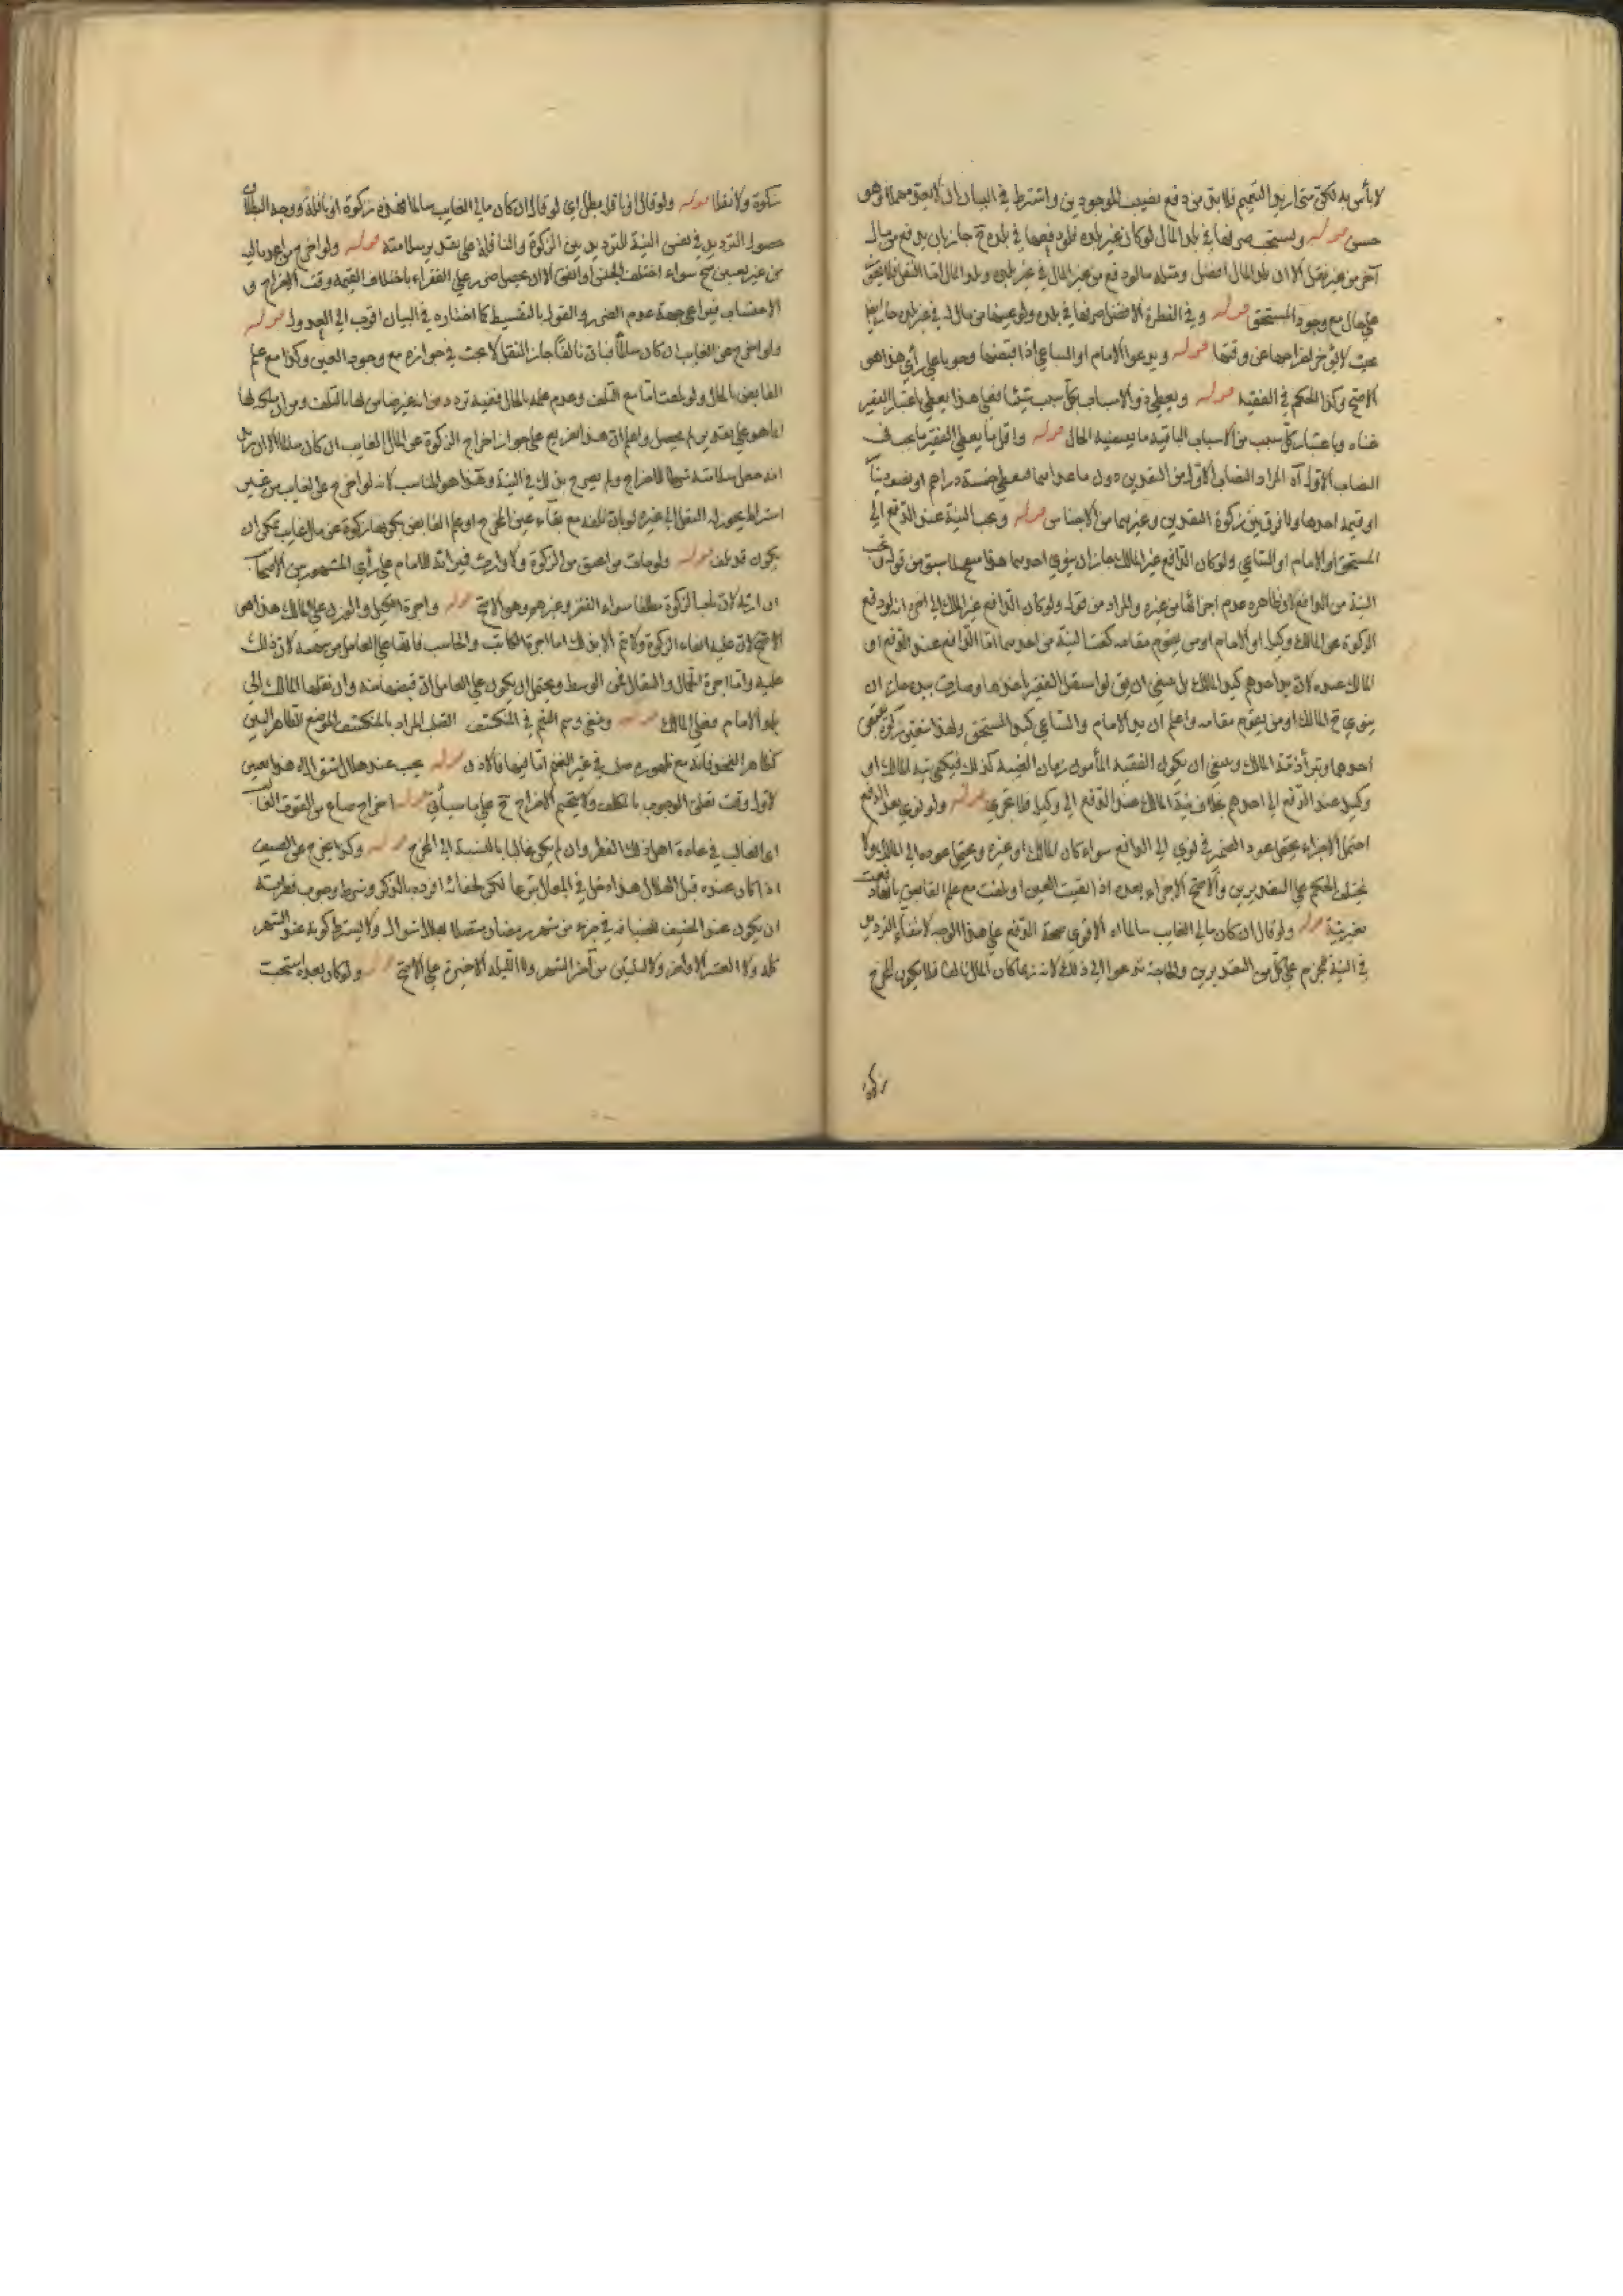 لا بأس به لكن متى اريد التعميم فلا بد من دفع نصيب الموجودين واشترط في البيان ان لا يبقى مهملا وهو
حسن قوله ويستحب صرفها في بلد المال لو كان غير بلده فلو دفعها في بلده ح جاز بان يدفع من مال
آخر من غير نقل الا ان بلد المال افضل ومثله ما لو دفع من غير المال في غير بلده وبلد المال اما النقل فلا يتحقق
على حال مع وجود المستحق قوله وفي الفطرة الافضل صرفها في بلده ولو عينها من مال له في غير بلده جاز ايضا
بحيث لا يؤخر اخراجها عن وقتها قوله ويدعو الامام او الساعي اذا قبضها وجوبا على رأي هذا هو
الاصح وكذا الحكم في الفقيه قوله ويعطى ذو الاسباب بكل سبب شيئا فعلى هذا يعطى باعتبار الفقير
غناه وباعتبار كل سبب من الاسباب الباقية ما يسعنيه الحال قوله واقل ما يعطى الفقير ما يجب في
النصاب الاول آه المراد النصاب الاول من النقدين دون ما عداهما فيعطى خمسة دراهم او نصف دينار
او قيمة احدها ولا فرق بين زكوة النقدين وغيرهما من الاجناس قوله وتجب النية عند الدفع الى
المستحق او الامام او الساعي ولو كان الدافع غير المالك جاز ان ينوي احدهما هذا مع ما سبق من قوله تجب
النية من الدافع لا وظاهره عدم اجزائها من غيره والمراد من قوله ولو كان الدافع غير المالك الى آخره انه لو دفع
الزكوة عن المالك وكيله او الامام او من يقوم مقامه كفت النية من احدهما اما الدافع عند الدفع او
المالك عنده لان يد احدهم كيد المالك بل ينبغي ان يق لو استقل الفقير باخذها وصارت بيده جاز ان
ينوي ح المالك او من يقوم مقامه واعلم ان يد الامام والساعي كيد المستحق ولهذا تتعين زكوة بقبض
احدهما وتبرأ ذمة المالك وينبغي ان يكون الفقيه المأمون زمان الغيبة كذلك فيكفي نية المالك او
وكيله عند الدفع الى احدهم بخلاف نية المالك عند الدفع الى وكيله فلا تجزي قوله ولو نوى بعد الدفع
احتمل الاجزاء يحتمل عود الضمير في نوى الى الدافع سواء كان المالك او غيره ويحتمل عوده الى المالك ولا
يختلف الحكم على التقديرين والاصح الاجزاء بعده اذا بقيت العين او تلفت مع علم القابض بانها دفعت
بغير نية قوله ولو قال ان كان مالي الغايب سالما اه الاقوى صحة الدفع على هذا الوجه لانتفاء الترديد
في النية للجزم على كل من التقديرين والحاجة تدعوا الى ذلك لانه ربما كان المال تالفا فلا يكون المخرج
زكوة
زكوة ولا نفلا قوله ولو قال او نافلة بطل اي لو قال ان كان مالي الغايب سالما فهذه زكوة او نافلة ووجه البطلان
حصول الترديد في نفس النية للترديد بين الزكوة والنافلة على تقدير سلامته قوله ولو اخرج من احد ماليه
من غير تعيين صح سواء اختلف الجنس او اتفق الا ان يحصل ضرر على الفقراء باختلاف القيمة وقت الاخراج و
الاحتساب فيراعى جهة عدم الضرر والقول بالتقسيط كما اختاره في البيان اقرب الى العدول قوله
ولو اخرج عن الغايب ان كان سالما فبان تالفا جاز النقل لا بحث في جوازه مع وجود العين وكذا مع علم
القابض بالحال ولو تلفت اما مع التلف وعدم علمه بالحال ففيه تردد من انه غير ضامن لها بالتلف ومن ان ملكه لها
انما هو على تقدير لم يحصل واعلم ان هذا تفريع على جواز اخراج الزكوة عن المال الغايب ان كان سالما الا ان
انه جعل سلامته شرطا للاخراج ولم يصرح بذلك في النية وهذا هو المناسب لانه لو اخرج عن الغايب من غير
اشتراط يجوز له النقل الى غيره لو بان تلفه مع بقاء عين المخرج او علم القابض بكونها زكوة عن مال غايب يمكن ان
يكون قد تلف قوله ولو مات من اعتق من الزكوة ولا وارث فميراثه للامام على رأي المشهور بين الاصحاب
ان ارثه لارباب الزكوة مطلقا سواء الفقراء وغيرهم وهو الاصح قوله واجرة الكيل والوزن على المالك هذا هو
الاصح لان عليه ايفاء الزكوة ولا يتم الا بذلك اما اجرة الكاتب والحاسب فانها على العامل من سهمه لان ذلك
عليه واما اجرة الحمال والنقال فمن الوسط ويحتمل ان يكون على العامل ان قبضها منه وان نقلها المالك الى
بلد الامام فعلى المالك قوله وينبغي وسم النعم في المنكشف الصلب المراد بالمنكشف الموضع الظاهر البين
كظاهر الفخذ فانه مع ظهوره صلب في غير الغنم اما فيها فالاذن قوله تجب عند هلال شوال اه هذا تعيين
لاول وقت تعلق الوجوب بالمكلف ولا يتحتم الاخراج ح على ما سيأتي قوله اخراج صاع من القوت الغالب
اي الغالب في عادة اهل ذلك القطر وان لم يكن غالبا بالنسبة الى المخرج قوله وكذا يخرج عن الضيف
اذا كان عنده قبل الهلال هذا دخل في المعال تبرعا لكن لخفائه افرده بالذكر وشرط وجوب فطرته
ان يكون عند المضيف للضيافة في جزء من شهر رمضان متصلا بهلال شوال ولا يشترط كونه عنده الشهر
كله ولا العشر الاواخر ولا الليلتين من آخر الشهر ولا الليلة الاخيرة على الاصح قوله ولو كان بعده استحبت